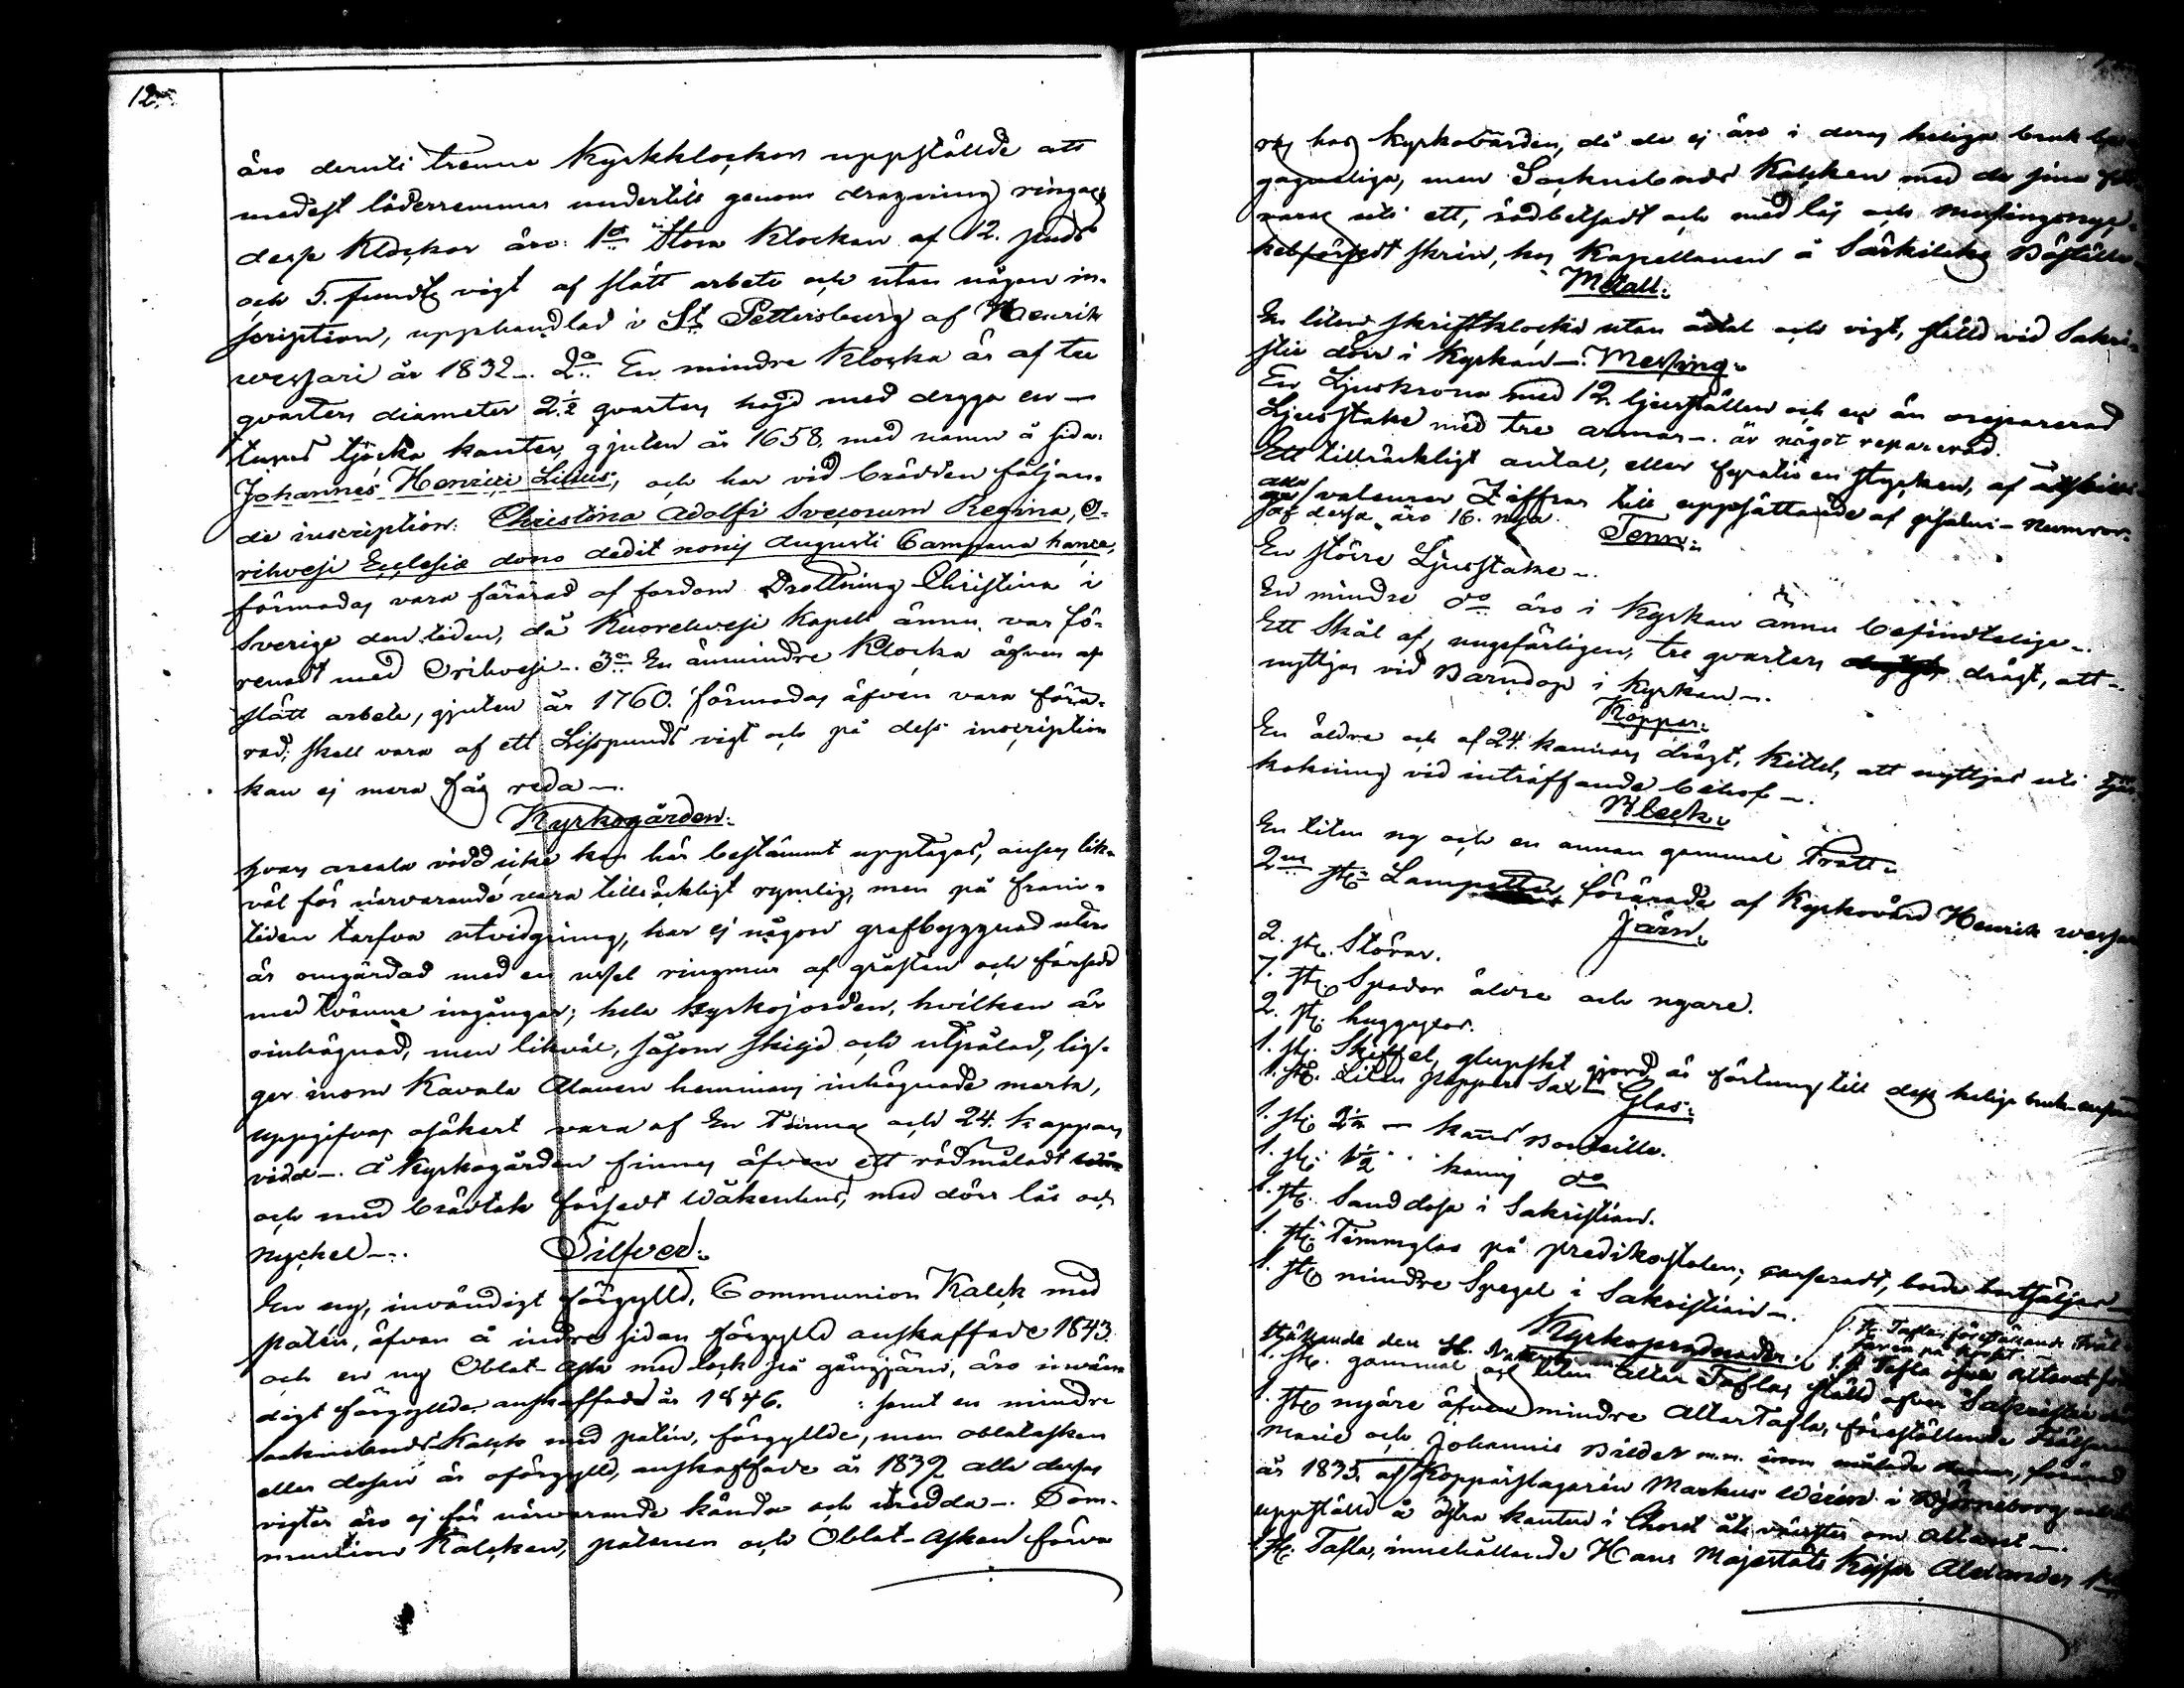 12.
äro deruti trenne Kyrkklockor uppställde att
medelst läderremmar undertill genom dragning ringas,
desse Klockor äro: 1o Stora Klockan af 12. puds
och 5. skundt vigt af slätt arbete och utan någon in-
scription, upphandlad i St Pettersburg af Henrik
Wessari år 1832 -. 2o En mindre Klocka är af tre
qvarters diameter 2 1/2 qvarters högd med drygga en -
tums tjocka kanter, gjuten år 1658. med namn å sida:
Johannes Henrici Lilius, och har vid brädden följan-
de inscription: Christina Adolfi Svecorum Regina, O-
rihvesi Ecclesiæ dono dedit nonis Augusti Campana hance,
förmodas vara förärad af fordom Drottning Christina i
Sverige den tiden, då Kuorehvesi Kapell ännu var fö-
renadt med Orihvesi -. 3o En ännmindre Klocka äfven af
slätt arbete, gjuten år 1760. förmodas äfven vara förä-
rad; skall vara af ett Lispunds vigt och på dess inscription
kan ej mera fås reda -.
Kyrkogården:
hvars areala vidd icke kan här bestämmt upptagas, anses lik-
väl för närvarande vara tillräckligt rymlig, men på fram-
tiden tarfva utvidgning, har ej någon grafbyggnad utan
är omgärdad med en usel ringmur af gråsten och försedd
med tvänne ingångar; hela Kyrkojorden, hvilken är
oinhägnad, men likväl, såsom skiljd och utpålad, lig-
ger inom Kavala Alanen hemmans inhägnade mark,
uppgifvas osäkert vara af En Tunna och 24. kappars
vidd -. Å Kyrkogården finnes äfven ett rödmåladt
och med brädtak försedt Wäkenhus, med dörr lås och
nyckel -.
Silfver:
En ny, invändigt förgylld, Communion Kalck med
patén, äfven å indre sidan förgylld anskaffade 1843.
och en ny Oblat-Ask med lock på gångjärn, äro invän-
digt förgyllde anskaffade år 1846. : samt en mindre
Sockenbuds Kalck med patén, förgyllde, men oblatasken
eller dosan är oförgylld, anskaffade år 1839 alla dessas
vigter äro ej för närvarande kända och utredda -. Com-
munion Kalcken, patenen och Oblat-Asken förva
ras hos Kyrkovärden, då de ej äro i deras heliga bruk
gagneliga, men Sockenbuds Kalcken med de sina
varas uti ett, rödbetsadt och med lås och messingsnyc-
kel försedt skrin, hos Kapellanen å Särkilaks Boställe
Metall:
En liten skriftklocka utan årtal och vigt, ställd vid Sakri-
stie dörr i Kyrkan -. Messing:
En Ljuskrona med 12. ljusställen och en än oreparerad
Ljusstake med tre armar -. är något reparerad.
Ett tillräckligt antal, eller fyratio en stycken, af åtskill-
valeurer Ziffror till uppsättande af psalm-numror.
af dessa äro 16. nya.
Tenn:
En större Ljusstake -.
En mindre do äro i Kyrkan ännu befindtelige -.
Ett Skål af, ungefärligen, tre qvarters drägt, att -
nyttjas vid Barndop i Kyrkan -.
Koppar:
En äldre och af 24. kannors drägt, Kittel, att nyttjas uti
kokning vid inträffande behof -.
Bleck:
En liten ny och en annan gammal Tratt:
2ne st: förärade af Kyrkovärd Henrik
Järn:
2. st. Störar.
7. st. Spador äldre och nyare.
2. st. huggyxor.
1. st. Skiffel, glupskt gjord, är förtung till dess helige bruk
1. st. Liten Pappers Sax
Glas:
1. st. 2 1/2 - kans Bouteille.
1. st. 1 1/2 " kanns do
1. st. Sanddosa i Sakristian.
1. st. Timmglas på predikostolen; borde bortsäljas
1. st. mindre Spegel i Sakristian -.
Kyrkoprydnader:
1. st. Tafla föreställande
1. st. Tafla öfver Altaret
ställande den H. Natt
1. st. gammal och liten Altar Tafla, ställd öfver Sakristie
1. st. nyare äfven mindre Altar Tafla, föreställande Frälsaren
Marie och Johannis Bilder m.m.
år 1835. af Kopparslagaren Markus i Björneborg
uppställd å östra kanten i Choret åt venster om Altaret -.
1. st. Tafla, innehållande Hans Majestäts Kejsar Alexander